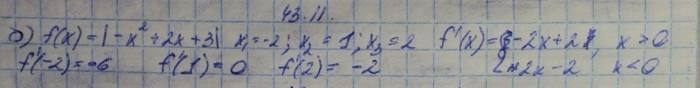 43.11.
б) f(x) = |-x² + 2x + 3| x₁ = -2; x₂ = 1; x₃ = 2 f'(x) = { -2x + 2, x > 0
f'(-2) = -6 f'(1) = 0 f'(2) = -2 2x - 2 x < 0